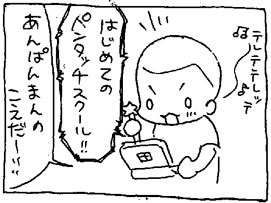 テレテテレッテ
はじめての
ペンタッチスクール!!
あんぱんまんの
こえだーー!!